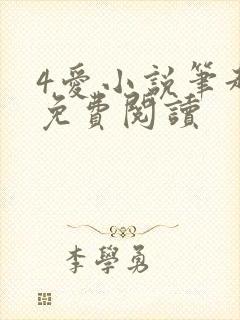 4.愛小說筆
免費閱讀
李學勇